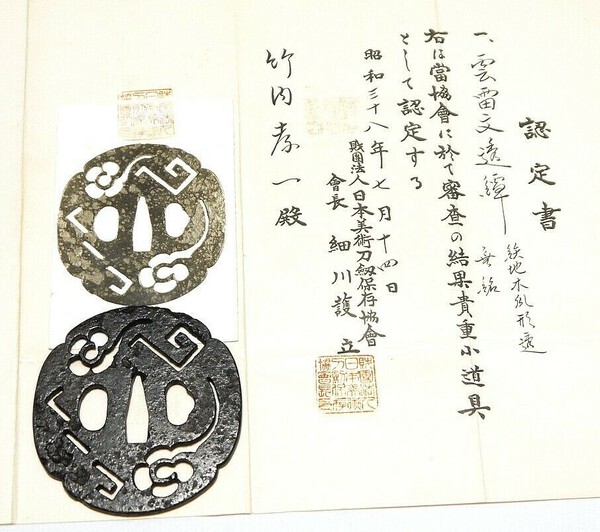 認定書
一、雲雷文透鐔 無銘
鉄地木瓜形透
右は當協會に於て審査の結果貴重小道具
として認定する
昭和三十八年七月十四日
財團法人日本美術刀劍保存協會
會長 細川護立
竹内孝一殿